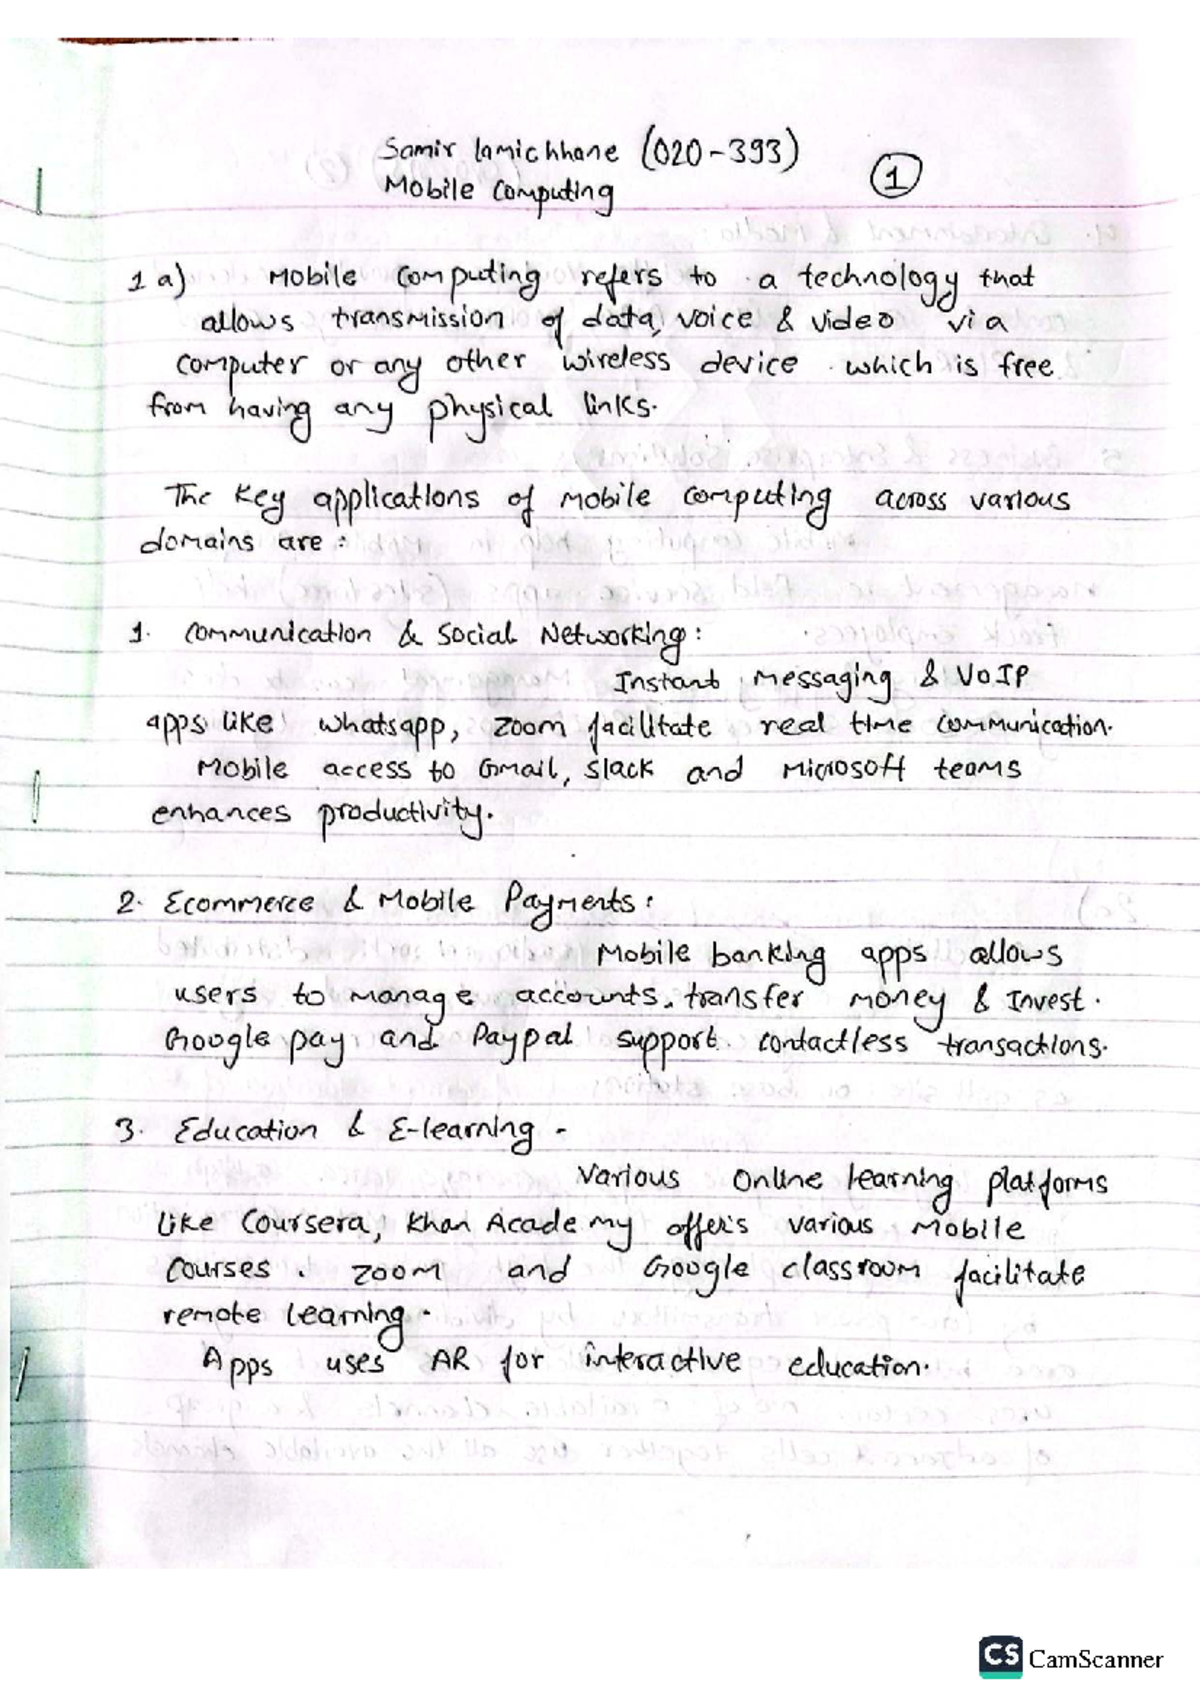 Samir lamichhane (020-393)
Mobile Computing
1
1 a) Mobile Computing refers to a technology that
allows transmission of data, voice & video via
computer or any other wireless device which is free
from having any physical links.
The key applications of mobile computing across various
domains are :
1. Communication & Social Networking :
Instant Messaging & VoIP
apps like whatsapp, zoom facilitate real time communication.
Mobile access to Gmail, Slack and Microsoft teams
enhances productivity.
2. Ecommerce & Mobile Payments :
Mobile banking apps allows
users to manage accounts, transfer money & Invest.
Google pay and Paypal support contactless transactions.
3. Education & E-learning -
Various Online learning platforms
like Coursera, Khan Academy offers various Mobile
Courses. Zoom and Google classroom facilitate
remote learning.
Apps uses AR for interactive education.
CS CamScanner